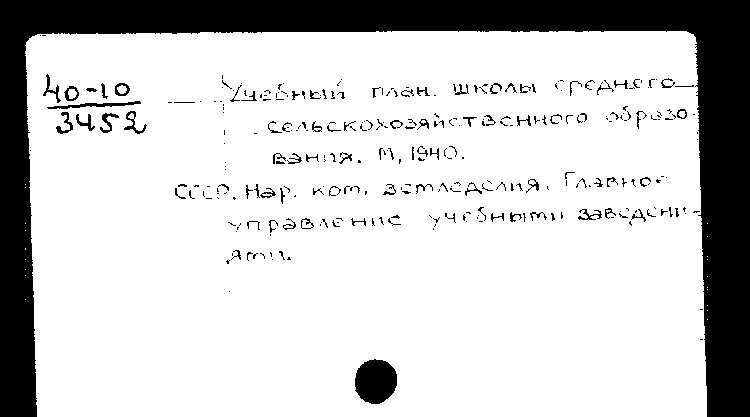 40-10
3452
Учебный план школы среднего
сельскохозяйственного образо-
вания. М, 1940.
СССР. Нар. ком. земледелия. Главное
управление учебными заведени-
ями.